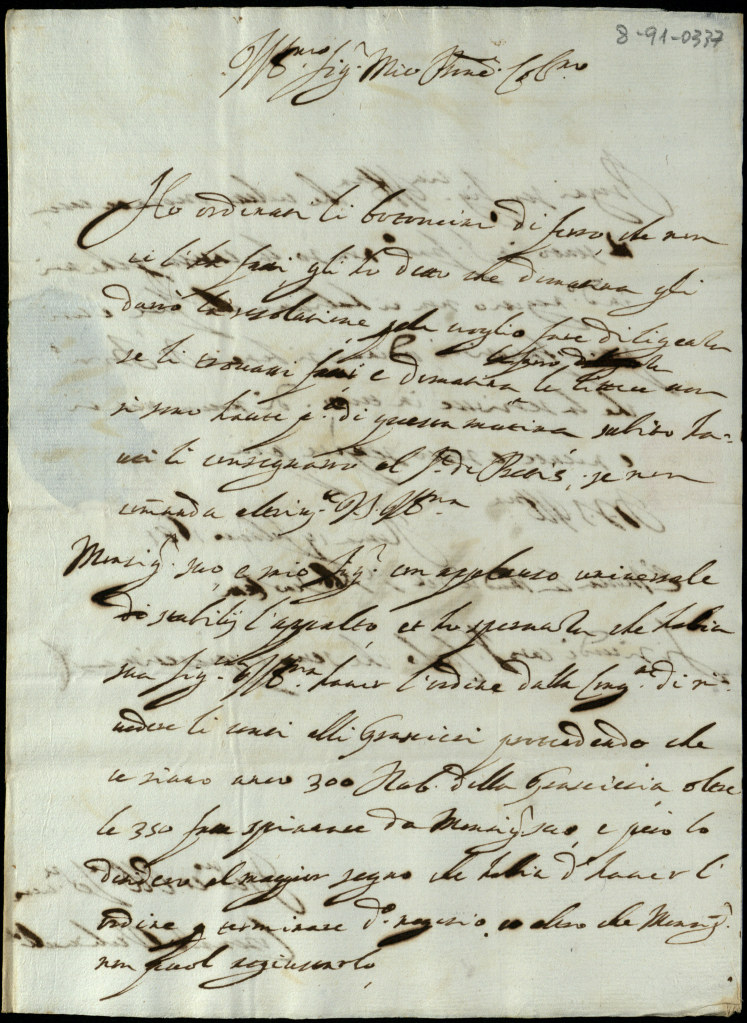 8-91-0337
Ill.mo Sig.r Mio P.rone Col.mo
Ho ordinati li botoncini di ferro, che non
vi li fatti, gli ho detto che dimatina gli
darò la resolutione, voglio fare diligenza
se li trovassi fatti e dimatina le lettere non
si sono haute di questa matina subito ha-
vuti li consegnarò al S.r de Rettis, se non
comanda altrim.te V.S. Ill.ma
Monsig.r suo, e mio Sig.r con applauso universale
stabilij l'appalto, et ho speranza che habia
sua Sig.ria Ill.ma haver l'ordine dalla Cong.ne di ri-
vedere li conti alli Grascieri pretendendo che
ce siano anco 300 Rub. della Grascieria oltre
le 350 fatte spianare da Monsig.r suo, e però lo
desidero al magior segno che habia d'haver l'
ordine p terminare d.o negotio, altro che Monsig.r
non puol agiustarlo,